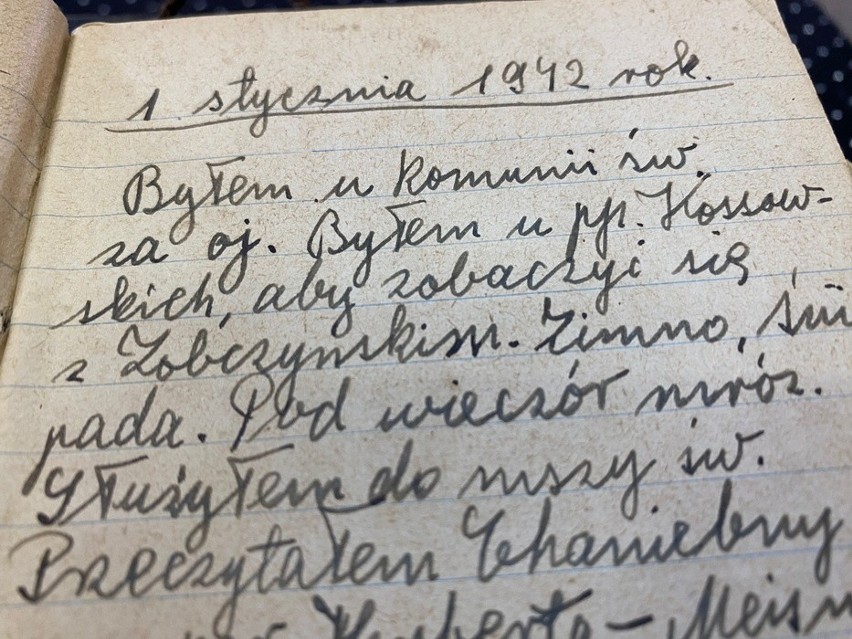 1 stycznia 1942 rok.
Byłem u komunii św.
za oj. Byłem u pp. Kossow-
skich, aby zobaczyć się
z Zobczyńskim. Zimno,
pada. Pod wieczór mróz.
Służyłem do mszy św.
Przeczytałem
Huberta-